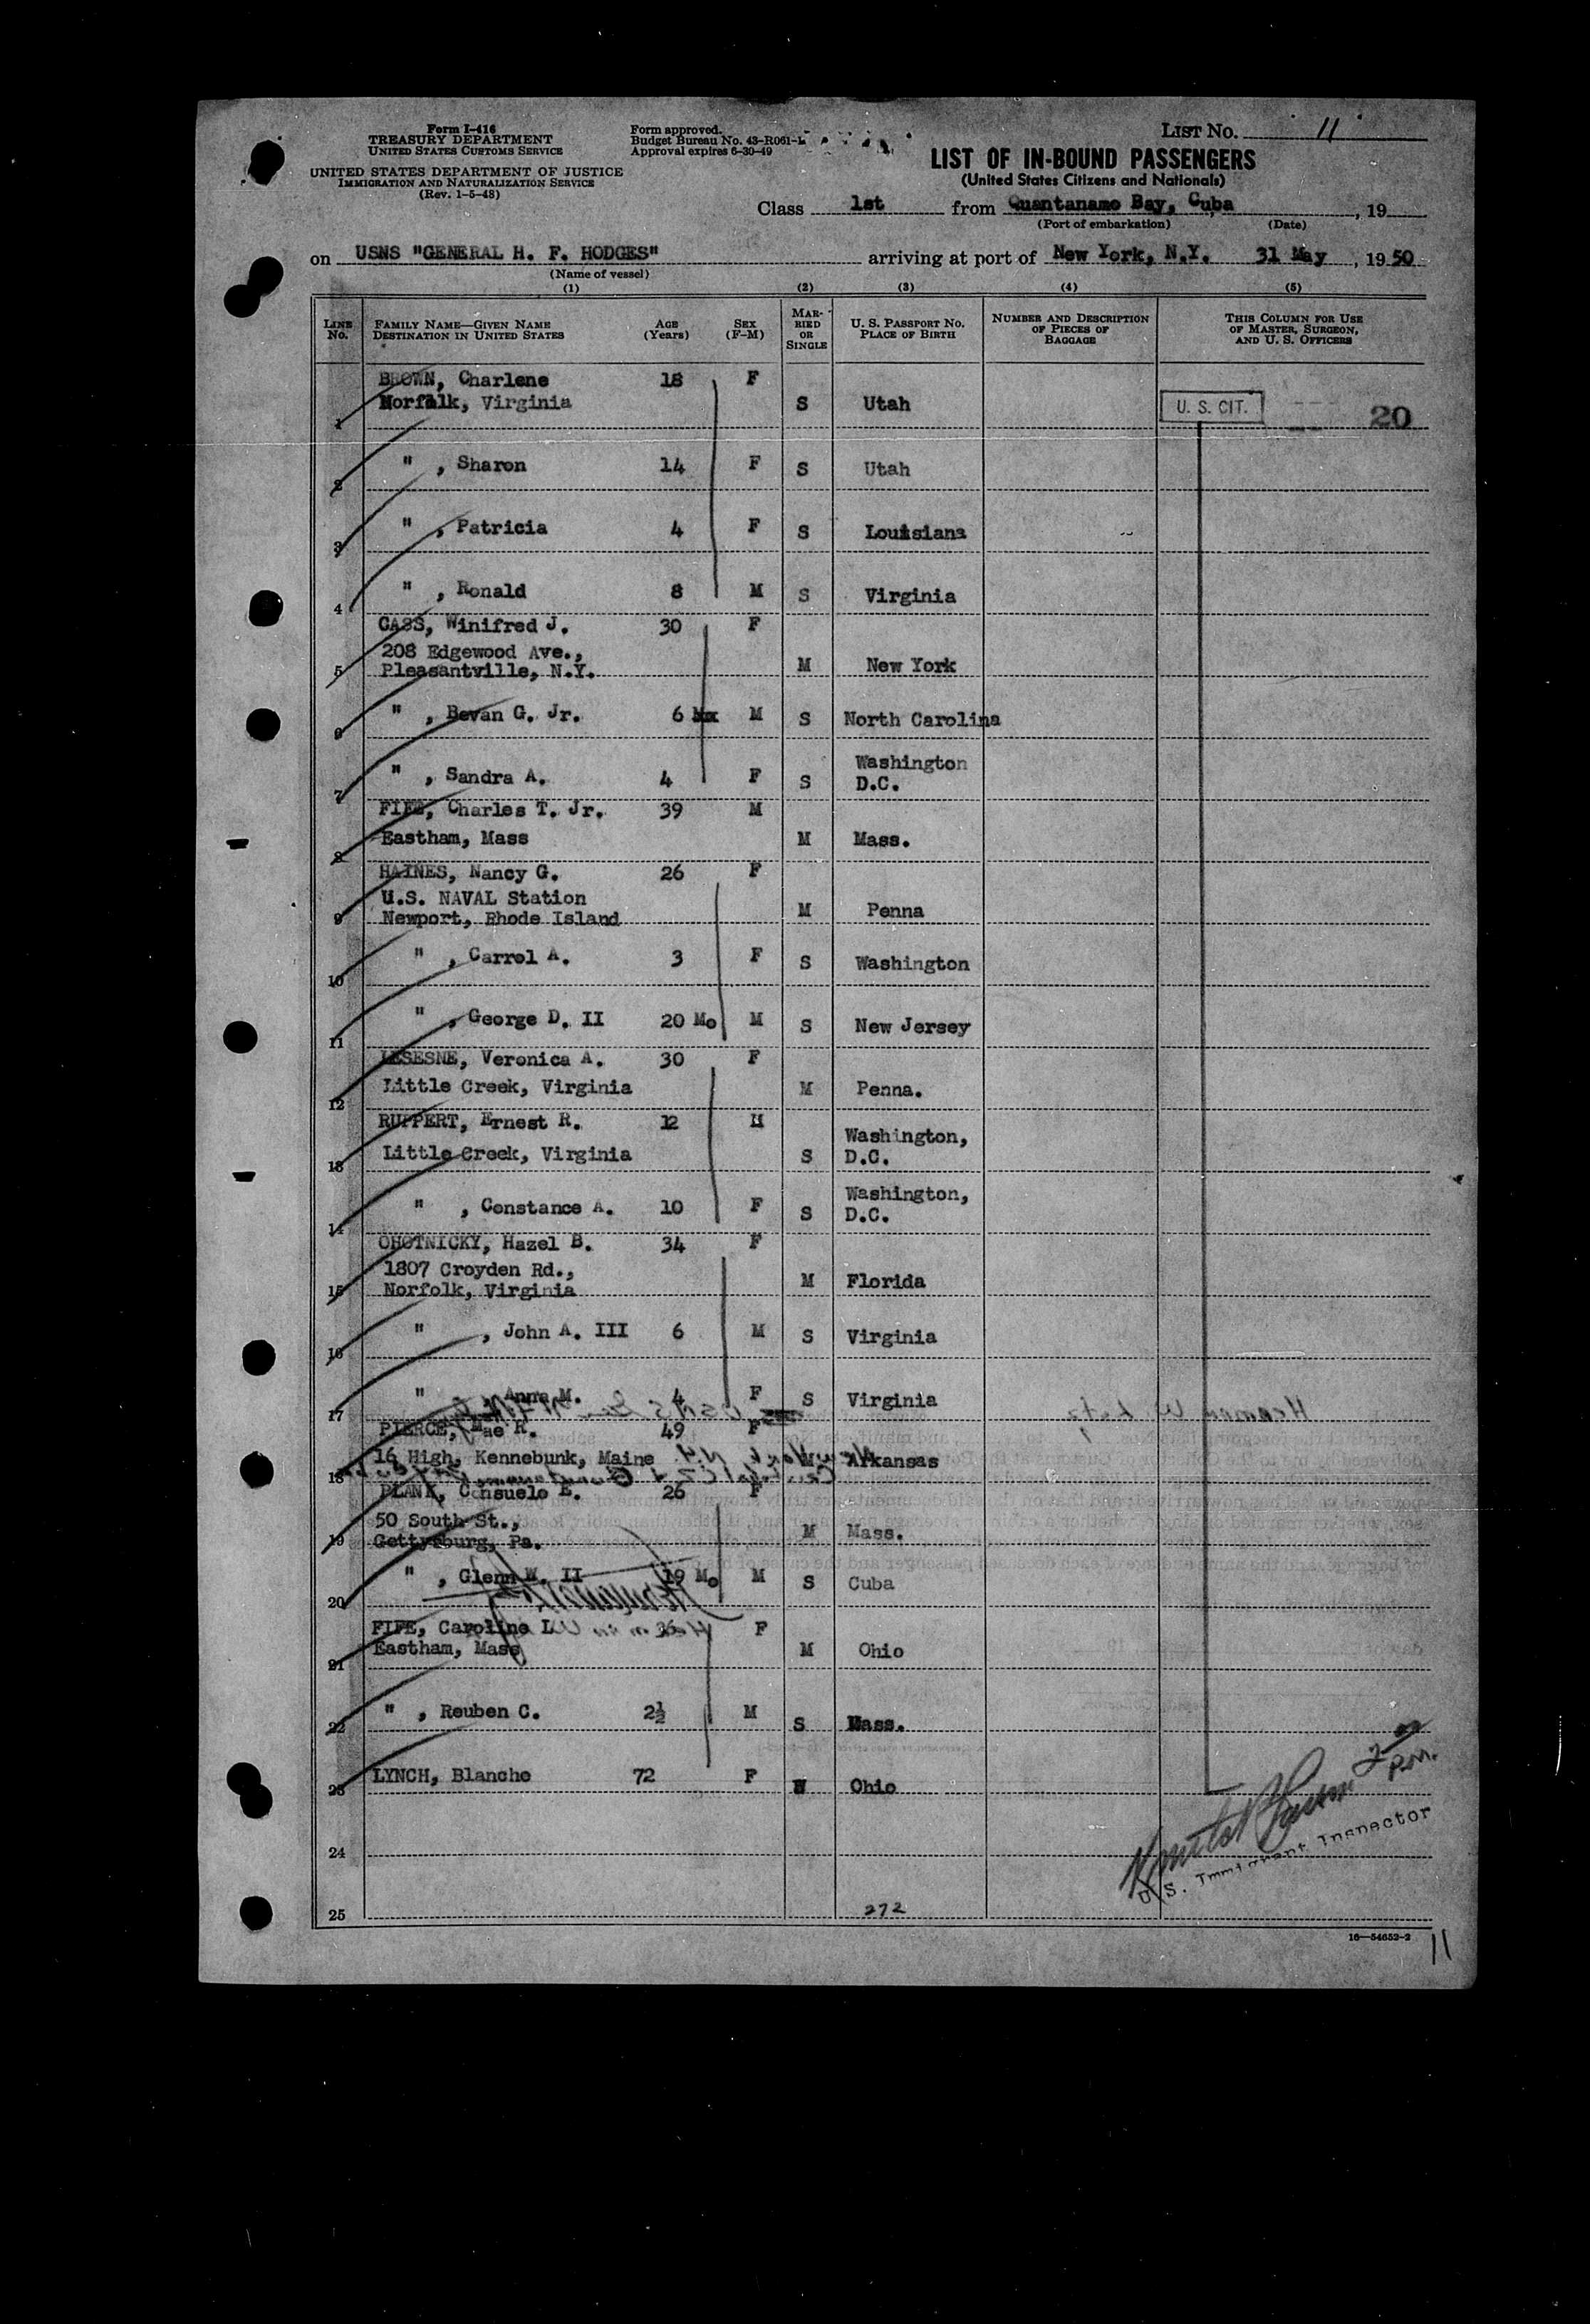 Form I-416
TREASURY DEPARTMENT
UNITED STATES CUSTOMS SERVICE
UNITED STATES DEPARTMENT OF JUSTICE
IMMIGRATION AND NATURALIZATION SERVICE
(Rev. 1-5-48)
Form approved.
Budget Bureau No. 43-R061-1
Approval expires 6-30-49
LIST NO. 11
LIST OF IN-BOUND PASSENGERS
(United States Citizens and Nationals)
Class 1st from Quantanamo Bay, Cuba , 19
(Port of embarkation) (Date)
on USNS "GENERAL H. F. HODGES" arriving at port of New York, N.Y. 31 May , 19 50
(Name of vessel)
(1) (2) (3) (4) (5)
LINE NO. FAMILY NAME—GIVEN NAME DESTINATION IN UNITED STATES AGE (Years) SEX (F-M) MARRIED OR SINGLE U. S. PASSPORT NO. PLACE OF BIRTH NUMBER AND DESCRIPTION OF PIECES OF BAGGAGE THIS COLUMN FOR USE OF MASTER, SURGEON, AND U. S. OFFICERS
BROWN, Charlene 18 F
1 Norfolk, Virginia S Utah U. S. CIT. 20
2 " , Sharon 14 F S Utah
3 " , Patricia 4 F S Louisiana
4 " , Ronald 8 M S Virginia
CASS, Winifred J. 30 F
208 Edgewood Ave.,
5 Pleasantville, N.Y. M New York
6 " , Bevan G. Jr. 6 M S North Carolina
7 " , Sandra A. 4 F S Washington D.C.
FIFE, Charles T. Jr. 39 M
8 Eastham, Mass M Mass.
HAINES, Nancy G. 26 F
U.S. NAVAL Station
9 Newport, Rhode Island M Penna
10 " , Carrol A. 3 F S Washington
11 " , George D. II 20 Mo M S New Jersey
LESESNE, Veronica A. 30 F
12 Little Creek, Virginia M Penna.
RUPPERT, Ernest R. 12 M
13 Little Creek, Virginia S Washington, D.C.
14 " , Constance A. 10 F S Washington, D.C.
OHOTNICKY, Hazel B. 34 F
1807 Croyden Rd.,
15 Norfolk, Virginia M Florida
16 " , John A. III 6 M S Virginia
17 " Anna M. 4 F S Virginia
PIERCE, Mae R. 49 F
18 16 High, Kennebunk, Maine M Arkansas
PLANK, Consuelo E. 26 F
50 South St.,
19 Gettysburg, Pa. M Mass.
20 " , Glenn W. II 19 Mo M S Cuba
FIFE, Caroline L 36 F
21 Eastham, Mass M Ohio
22 " , Reuben C. 2½ M S Mass.
23 LYNCH, Blanche 72 F Ohio
24
2 00 p.m.
U. S. Immigrant Inspector
25 272
16—54652-2 11